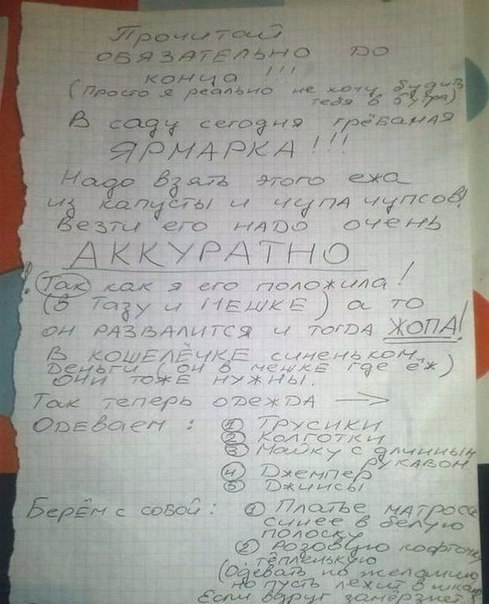 Прочитай
ОБЯЗАТЕЛЬНО ДО
конца!!!
(просто я реально не хочу будить
тебя в 6 утра)
В саду сегодня грёбаная
ЯРМАРКА!!!
Надо взять этого ежа
из капусты и чупа чупсов!
Везти его НАДО очень
АККУРАТНО
! Так как я его положила!
(в тазу и МЕШКЕ) а то
он РАЗВАЛИТСЯ и тогда ЖОПА!
В КОШЕЛЁЧКЕ синеньком
деньги (он в мешке где ёж)
они тоже нужны.
Так теперь одежда →
Одеваем: ① Трусики
② Колготки
③ Майку с длинным
рукавом
④ Джемпер
⑤ Джинсы
Берём с собой: ① Платье матроса
синее в белую
полоску
② Розовую кофтонку
тёпленькую
(Одевать по желанию
но пусть лежит в шкаф
Если вдруг замёрзнет